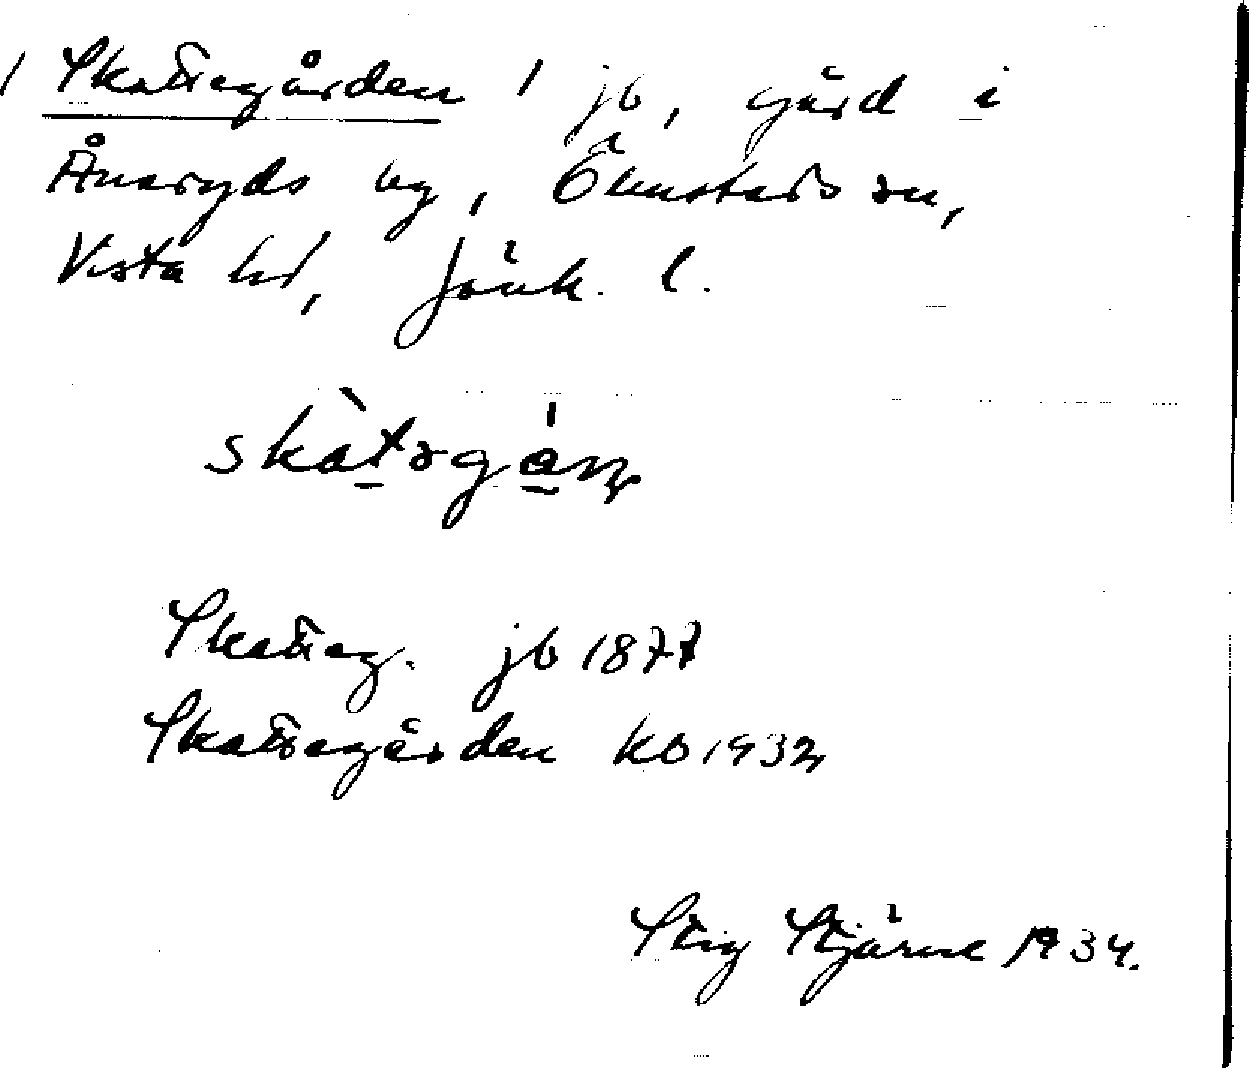 / Skattegården / jb, gård i
Ånaryds by, Ölmstads sn,
Vista hd, Jönk. l.
skàtəgáṇ
Skatteg. jb 1877
Skattegården kb 1932
Stig Stjärne 1934.